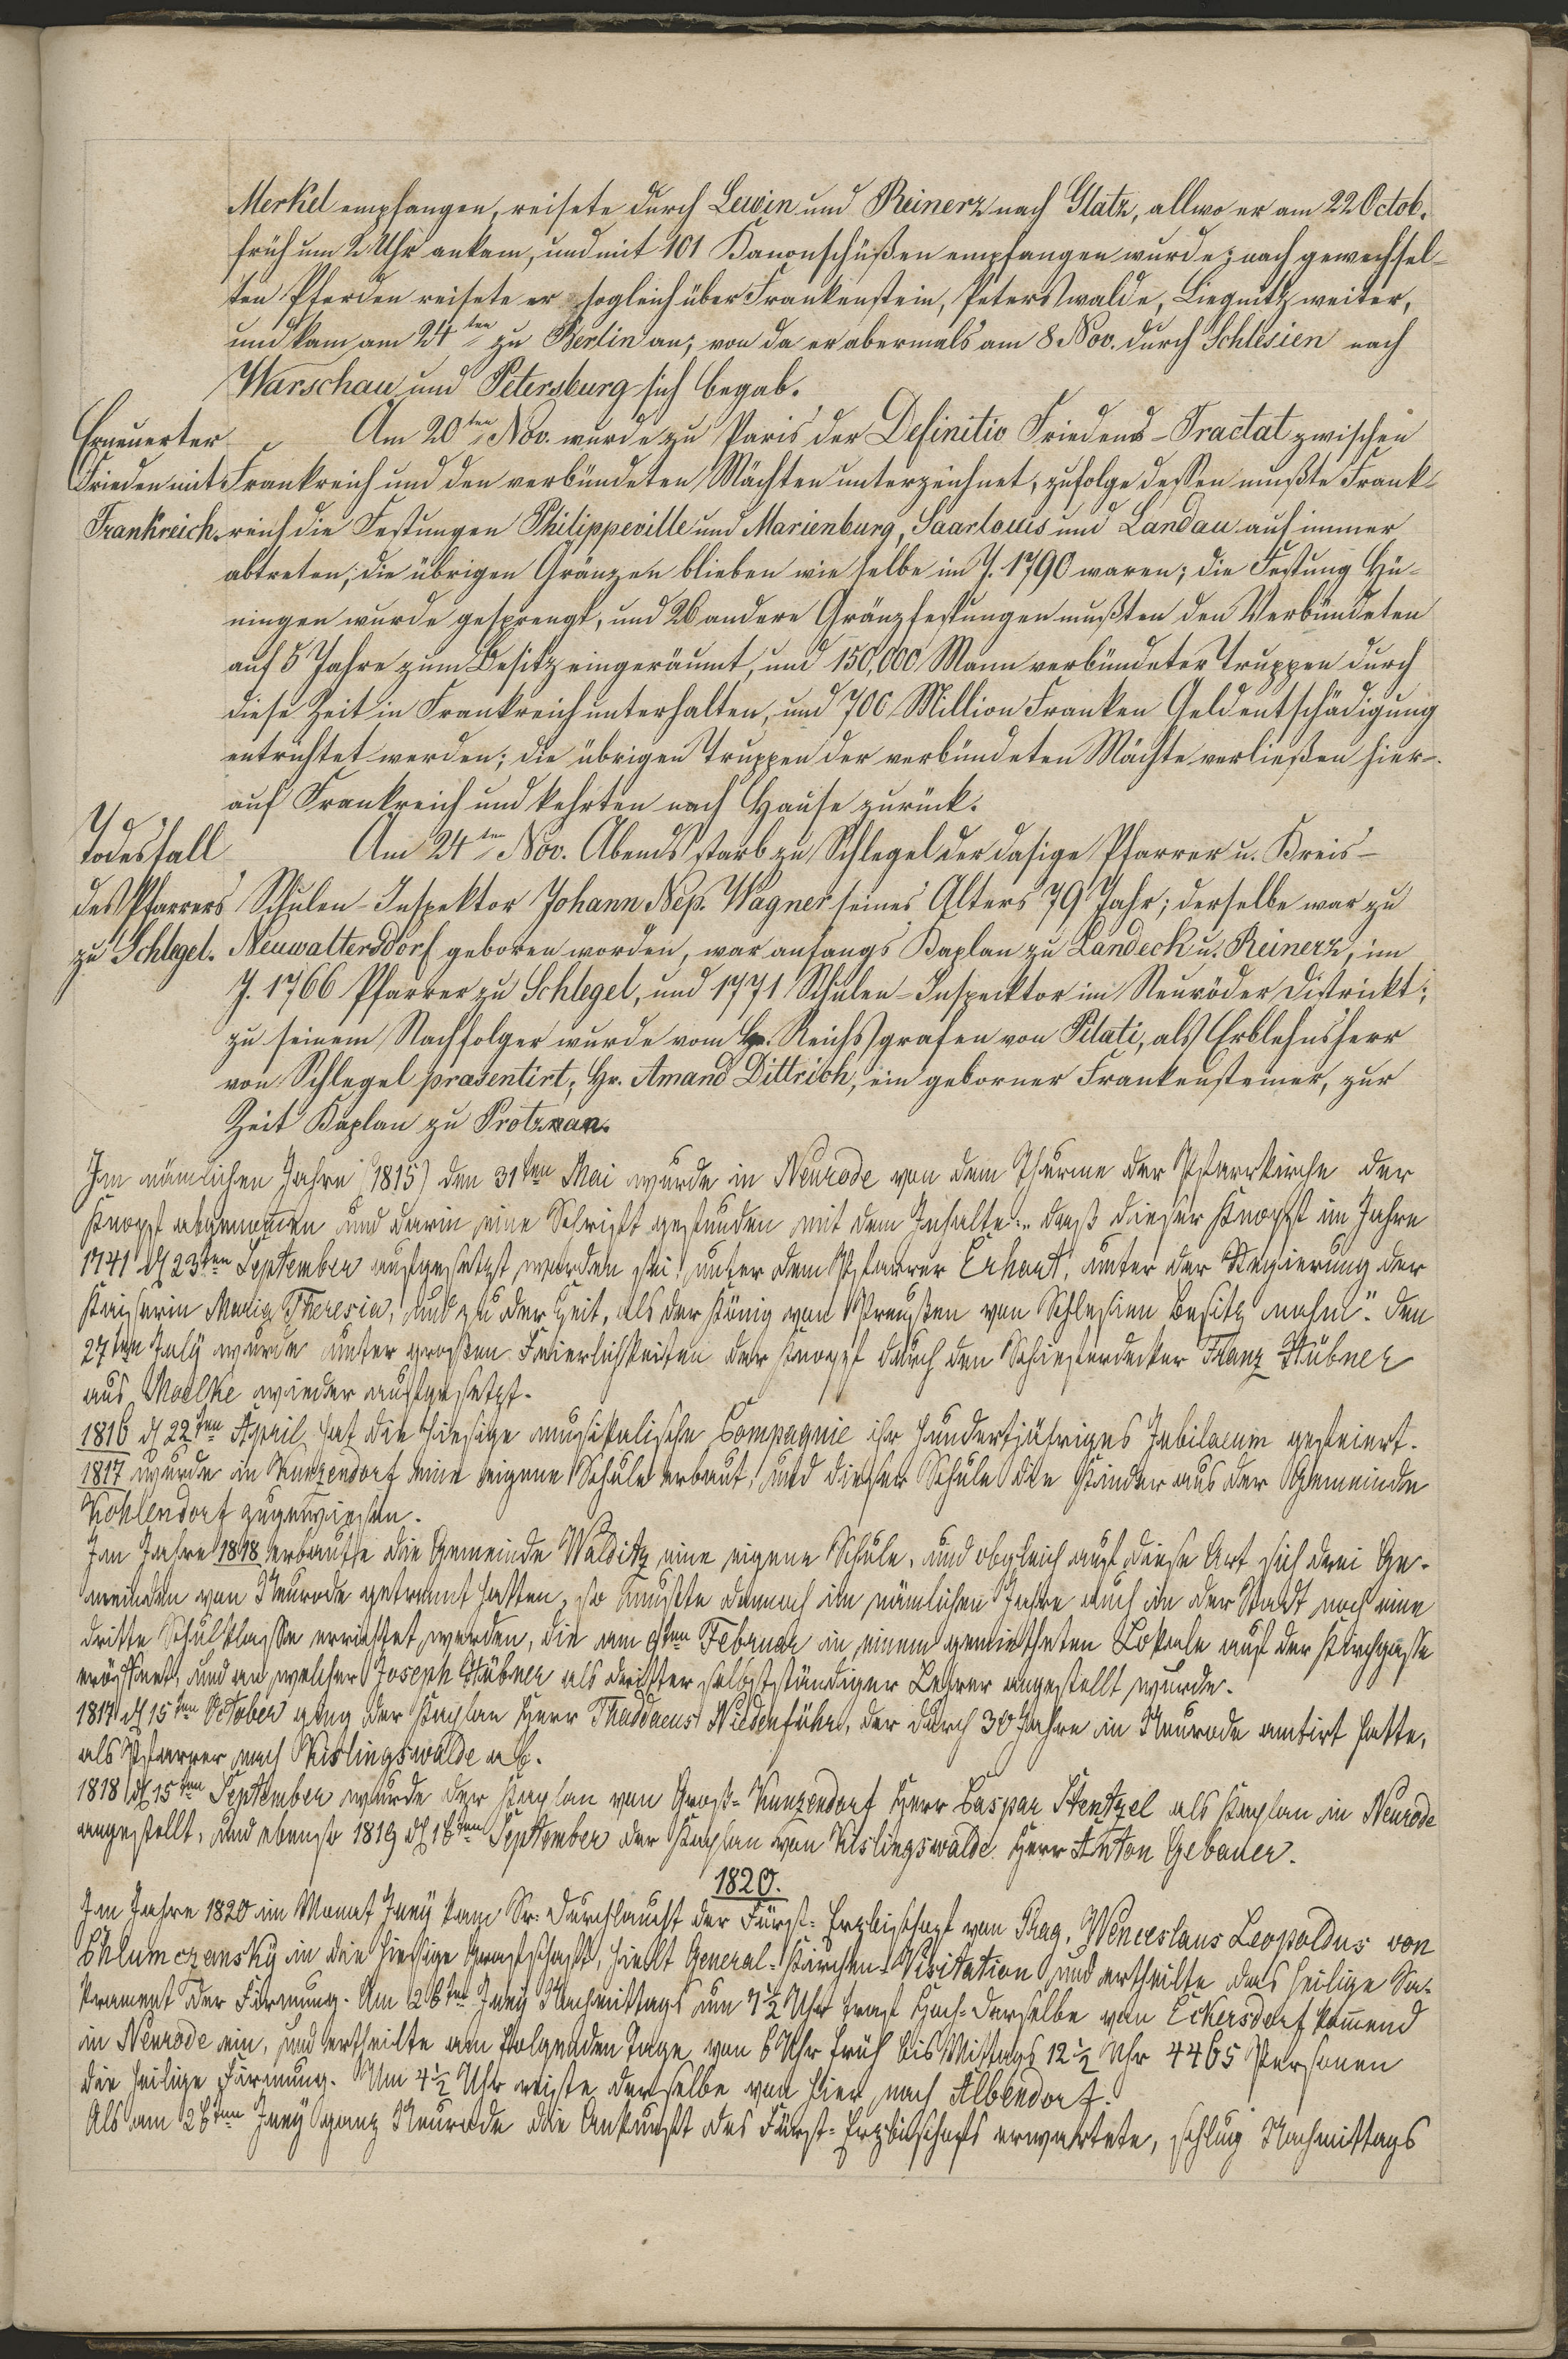 Merkel empfangen, reisete durch Lewin und Reinerz nach Glatz, allwo er am 22 Octob.
früh um 2 Uhr ankam, und mit 101 Kanonschüßen empfangen wurde; nach gewechsel-
ten Pferden reisete er sogleich über Frankenstein, Peterswalde, Liegnitz weiter,
und kam am 24ten zu Berlin an; von da er abermals am 8 Nov. durch Schlesien nach
Warschau und Petersburg sich begab.
Erneuerter
Frieden mit
Frankreich.
Am 20ten Nov. wurde zu Paris der Definitiv Friedens-Tractat zwischen
Frankreich und den verbündeten Mächten unterzeichnet, zufolge deßen mußte Frank-
reich die Festungen Philippeville und Marienburg, Saarlouis und Landau auf immer
abtreten; die übrigen Gränzen blieben wie selbe im J. 1790 waren; die Festung Hü-
ningen wurde gesprengt, und 26 andere Gränzfestungen mußten den Verbündeten
auf 5 Jahre zum Besitz eingeräumt, und 150,000 Mann verbündeter Truppen durch
diese Zeit in Frankreich unterhalten, und 700 Million Franken Geldentschädigung
entrichtet werden; die übrigen Truppen der verbündeten Mächte verließen hier-
auf Frankreich und kehrten nach Hause zurück.
Todesfall
des Pfarrers
zu Schlegel.
Am 24ten Nov. Abends starb zu Schlegel der dasige Pfarrer u. Kreis-
Schulen-Inspektor Johann Nep. Wagner seines Alters 79 Jahr; derselbe war zu
Neuwaltersdorf geboren worden, war anfangs Kaplan zu Landeck u. Reinerz, im
J. 1766 Pfarrer zu Schlegel, und 1771 Schulen-Inspecktor im Neuröder Districkt;
zu seinem Nachfolger wurde vom Hr. Reichsgrafen von Pilati, als Erblehnsherr
von Schlegel præsentirt, Hr. Amand Dittrich, ein geborner Frankensteiner, zur
Zeit Kaplan zu Protzan.
Im nämlichen Jahre (1815) den 31ten Mai wurde in Neurode von dem Thurme der Pfarrkirche der
Knopf abgenom̄en und darin eine Schrift gefunden mit dem Inhalte: „daß dieser Knopf im Jahre
1741 d 23ten September aufgesetzt worden sei, unter dem Pfarrer Erhart, unter der Regierung der
Kaiserin Maria Theresia, und zu der Zeit, als der König von Preußen von Schlesien Besitz nahm.“ Den
27ten July wurde unter großen Feierlichkeiten der Knopf durch den Schieferdecker Franz Hübner
aus Moelke wieder aufgesetzt.
1816 d 22ten April hat die hiesige musikalische Compagnie ihr hundertjähriges Jubilaeum gefeiert.
1817 wurde in Kunzendorf eine eigene Schule erbaut, und dieser Schule die Kinder aus der Gemeinde
Kohlendorf zugewiesen.
Im Jahre 1818 erbaute die Gemeinde Walditz eine eigene Schule, und obgleich auf diese Art sich drei Ge-
meinden von Neurode getrennt hatten, so mußte dennoch im nämlichen Jahre auch in der Stadt noch eine
dritte Schulklasse errichtet werden, die am 9ten Februar in einem gemietheten Lokale auf der Kirchgasse
eröffnet, und an welcher Joseph Hübner als dritter selbstständiger Lehrer angestellt wurde.
1817 d 15ten October ging der Kaplan Herr Thaddaeus Niedenführ, der durch 30 Jahre in Neurode amtirt hatte,
als Pfarrer nach Kislingswalde ab.
1818 d 15ten September wurde der Kaplan von Groß-Kunzendorf Herr Caspar Stentzel als Kaplan in Neurode
angestellt, und ebenso 1819 d 16ten September der Kaplan von Kislingswalde Herr Anton Gebauer.
1820.
Im Jahre 1820 im Monat Juny kam Sr. Durchlaucht der Fürst-Erzbischof von Prag, Wenceslaus Leopoldus von
Chlumczansky in die hiesige Grafschaft, hielt General-Kirchen-Visitation und ertheilte das heilige Sa-
krament der Firmung. Am 26ten Juny Nachmittags um 7½ Uhr traf Hoch-Derselbe von Eckersdorf kom̄end
in Neurode ein, und ertheilte am folgenden Tage von 6 Uhr früh bis Mittags 12½ Uhr 4465 Personen
die heilige Firmung. Um 4½ Uhr reiste derselbe von hier nach Albendorf.
Als am 26ten Juny ganz Neurode die Ankunft des Fürst-Erzbischofs erwartete, schlug Nachmittags